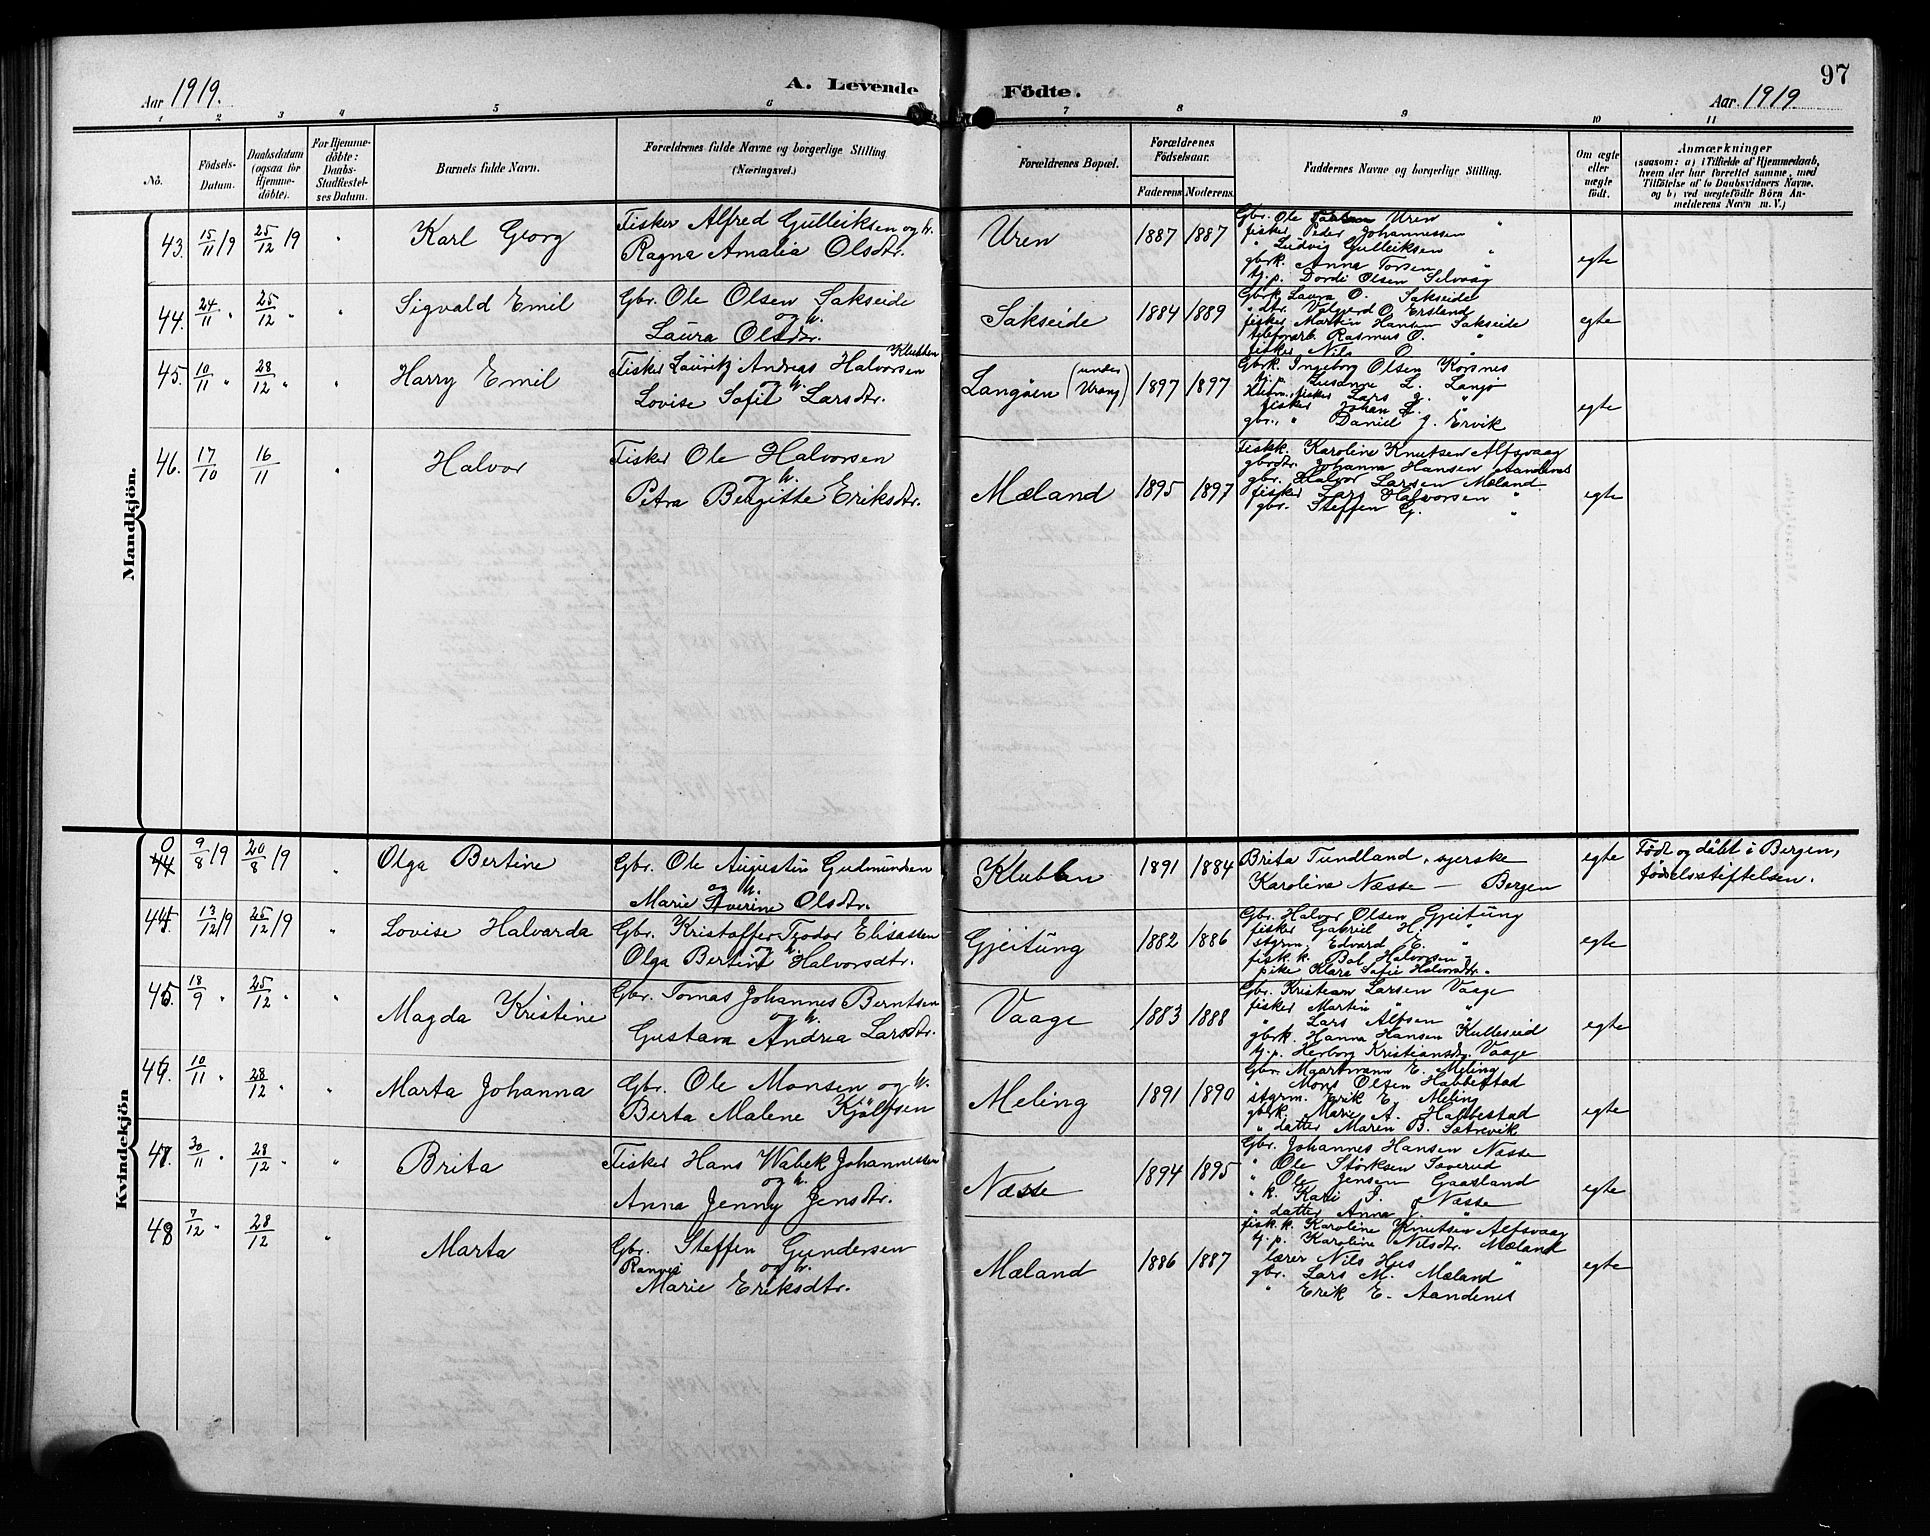 97
Aar 1919. A. Levende Födte. Aar 1919.
1 2 3 4 5 6 7 8 9 10 11
No.
Födsels-Datum.
Daabsdatum (ogsaa for Hjemme-döbte).
For Hjemme-döbte: Daabs-Stadfæstel-ses Datum.
Barnets fulde Navn.
Forældrenes fulde Navne og borgerlige Stilling (Næringsvei.)
Forældrenes Bopæl.
Forældrenes Födselsaar.
Faderens. Moderens.
Faddernes Navne og borgerlige Stilling.
Om ægte eller uægte født.
Anmærkninger
(saasom: a) i Tilfælde af Hjemmedaab,
hvem der har forrettet samme, med
Tilföielse af to Daabsvidners Navne,
og b) ved uægtefödte Börn An-
melderens Navn m. V.)
Mandkjön.
43. 15/11 19 25/12 19 " Karl Georg
Fisker Alfred Gulleiksen og h.
Ragna Amalia Olsdtr.
Uren 1887 1887
Gbr. Ole Uren
fisker Peder Johannessen "
" Ludvig Gulleiksen "
gbrk. Anna Torsen "
tj.p. Dordi Olsen Selvaag
egte
44. 24/11 " 25/12 " " Sigvald Emil
Gbr. Ole Olsen Sakseide
og h.
Laura Olsdtr.
Sakseide 1884 1889
Gbrk. Laura O. Sakseide
" dtr. Valgerd O. Ersland
fisker Martin Hansen Sakseide
Rasmus O. "
fisker Nils O. "
egte
45. 10/11 " 28/12 " " Harry Emil
Klubben
Fisker Lauritz Andreas Halvorsen
og h.
Lovise Sofie Larsdtr.
Langöen (under Urang) 1897 1897
Gbrk. Ingeborg Olsen Korsnes
tj.p. Susanne L. Langö
fisker Lars J. "
fisker Johan L. "
gbr. " Daniel J. Ervik
egte
46. 17/10 16/11 " Halvor
Fisker Ole Halvorsen
og h.
Petra Bergitte Eriksdtr.
Mæland 1895 1897
Fiskk. Karoline Knutsen Alfsvaag
gbrdtr. Johanna Hansen Aandenes
gbr. Halvor Larsen Mæland
fisker Lars Halvorsen "
gbr. Steffen G. "
egte
Kvindekjön
0 9/8 19 20/8 19 " Olga Bertine
Gbr. Ole Augustin Gudmundsen
og h.
Marie Severine Olsdtr.
Klubben 1891 1884
Brita Tundland, syerske
Karoline Næsse — Bergen
egte
Födt og döbt i Bergen,
fødselsstiftelsen.
44. 13/12 19 25/12 19 " Lovise Halvarda
Gbr. Kristoffer Teodor Eliassen
og h.
Olga Bertine Halvorsdtr.
Gjeitung 1882 1886
Gbr. Halvor Olsen Gjeitung
fisker Gabriel H. "
stgrm. Edvard E. "
fisk.k. Bol Halvorsen "
pike Klara Sofie Halvorsdtr. "
egte
45. 18/9 " 25/12 " " Magda Kristine
Gbr. Tomas Johannes Berntsen
og h.
Gustava Andrea Larsdtr.
Vaage 1883 1888
Gbr. Kristian Larsen Vaage
fisker Martin " "
" Lars Alfsen "
gbrk. Hanna Hansen Kulleseid
tj.p. Herborg Kristiansdtr. Vaage
egte
46. 10/11 " 28/12 " " Marta Johanna
Gbr. Ole Monsen og h.
Berta Malene Kjölfsen
Meling 1891 1890
Gbr. Maartmann E. Meling
" Mons Olsen Habbestad
stgrm. Erik E. Meling
gbrk. Marie A. Habbestad
" datter Maren B. Sætrevik
egte
47. 30/11 " 28/12 " " Brita
Fisker Hans Wabek Johannessen
og h.
Anna Jenny Jensdtr.
Næsse 1894 1895
Gbr. Johannes Hansen Næsse
" Ole Störksen Saverud
" Ole Jensen Gaasland
" k. Kari J. Næsse
" datter Anna J. "
egte
48 7/12 " 28/12 " Marta
Gbr. Steffen Gundersen
og h.
Rannei
Marie Eriksdtr.
Mæland 1886 1887
fisk.k. Karoline Knutsen Alfsvaag
tj.p. Karoline Nilsdtr. Mæland
lærer Nils Hus "
gbr. Lars M. Mæland
" Erik E. Aandenes
egte